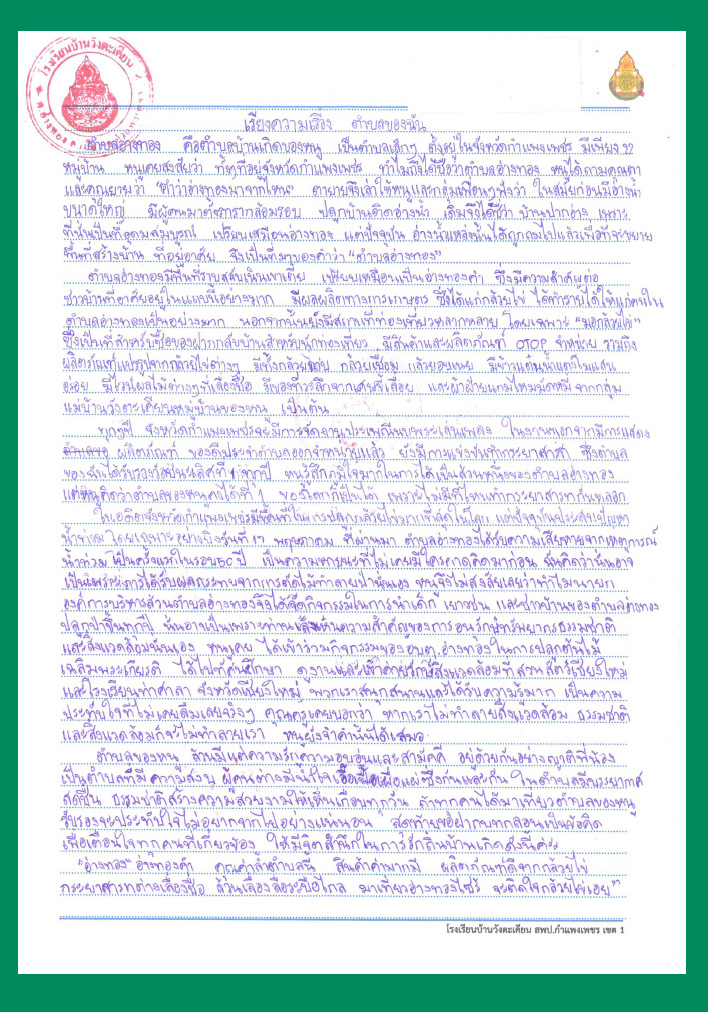 โรงเรียนบ้านวังตะเคียน
เรียงความเรื่อง ตำบลของฉัน
ตำบลอ่างทอง คือตำบลบ้านเกิดของหนู เป็นตำบลเล็กๆ ตั้งอยู่ในจังหวัดกำแพงเพชร มีเพียง 22
หมู่บ้าน หนูเคยสงสัยว่า ทั้งๆที่อยู่จังหวัดกำแพงเพชร ทำไมถึงได้ชื่อว่าตำบลอ่างทอง หนูได้ถามคุณตา
และคุณยายว่า "คำว่าอ่างทองมาจากไหน" ตายายจึงเล่าให้หนูและกลุ่มเพื่อนๆฟังว่า ในสมัยก่อนมีอ่างน้ำ
ขนาดใหญ่ มีผู้คนมาตั้งรกรากล้อมรอบ ปลูกบ้านติดอ่างน้ำ เดิมจึงได้ชื่อว่า บ้านปากอ่าง เพราะ
ที่นั่นเป็นที่อุดมสมบูรณ์ เปรียบเสมือนอ่างทอง แต่ปัจจุบัน อ่างน้ำแหล่งนั้นได้ถูกถมไปแล้วเพื่อที่จะขยาย
พื้นที่สร้างบ้าน ที่อยู่อาศัย จึงเป็นที่มาของคำว่า "ตำบลอ่างทอง"
ตำบลอ่างทองมีพื้นที่ราบสลับเนินเขาเตี้ย เปรียบเหมือนเป็นอ่างทองคำ ซึ่งมีความสำคัญต่อ
ชาวบ้านที่อาศัยอยู่ในแถบนี้อย่างมาก มีผลผลิตทางการเกษตร ซึ่งได้แก่กล้วยไข่ ได้ทำรายได้ให้แก่คนใน
ตำบลอ่างทองเป็นอย่างมาก นอกจากนั้นยังมีสถานที่ท่องเที่ยวหลากหลาย โดยเฉพาะ "มอกล้วยไข่"
ซึ่งเป็นที่สำหรับซื้อของฝากกลับบ้านสำหรับนักท่องเที่ยว มีสินค้าและผลิตภัณฑ์ OTOP จำหน่าย รวมถึง
ผลิตภัณฑ์แปรรูปจากกล้วยไข่ต่างๆ มีทั้งกล้วยฉาบ กล้วยเชื่อม กล้วยอบเนย มีข้าวแต๋นน้ำแตงโมแสน
อร่อย มีไวน์ผลไม้ต่างๆที่เลื่องชื่อ มีของที่ระลึกจากเศษขี้เลื่อย และผ้าฝ้ายแกมไหมมัดหมี่ จากกลุ่ม
แม่บ้านวังตะเคียนหมู่บ้านของหนู เป็นต้น
ทุกๆปี จังหวัดกำแพงเพชรจะมีการจัดงานประเพณีนบพระเล่นเพลง ในงานนอกจากมีการแสดง
ผลิตภัณฑ์ ของดีประจำตำบลออกจำหน่ายแล้ว ยังมีการแข่งขันทำกระยาสารท ซึ่งตำบล
ของฉันได้รับรางวัลชนะเลิศที่ 1 ทุกปี หนูรู้สึกภูมิใจมากในการได้เป็นส่วนหนึ่งของตำบลอ่างทอง
แต่หนูคิดว่าตำบลของหนูคงได้ที่ 1 ของโลกก็เป็นได้ เพราะไม่มีที่ไหนทำกระยาสารทกันหรอก
ในอดีตจังหวัดกำแพงเพชรมีพื้นที่ในการปลูกกล้วยไข่มากที่สุดในโลก แต่ปัจจุบันประสบปัญหา
น้ำท่วม โดยเฉพาะอย่างยิ่งวันที่ ๑๖ พฤษภาคม ที่ผ่านมา ตำบลอ่างทองได้รับความเสียหายจากเหตุการณ์
น้ำท่วม เป็นครั้งแรกในรอบ 50 ปี เป็นความหายนะที่ไม่เคยมีใครคาดคิดมาก่อน ฉันคิดว่านั่นอาจ
เป็นเพราะเราได้รับผลกระทบจากการตัดไม้ทำลายป่านั่นเอง หนูจึงไม่สงสัยเลยว่าทำไมนายก
องค์การบริหารส่วนตำบลอ่างทองจึงได้จัดกิจกรรมในการนำเด็ก เยาวชน และชาวบ้านของตำบลอ่างทอง
ปลูกป่าขึ้นทุกปี นั่นอาจเป็นเพราะท่านเล็งเห็นความสำคัญของการอนุรักษ์ทรัพยากรธรรมชาติ
และสิ่งแวดล้อมนั่นเอง หนูเคย ได้เข้าร่วมกิจกรรมของอบต.อ่างทองในการปลูกต้นไม้
เฉลิมพระเกียรติ ได้ไปทัศนศึกษา ดูงานและเข้าค่ายรักษ์สิ่งแวดล้อมที่สวนสัตว์เชียงใหม่
และโรงเรียนท่าศาลา จังหวัดเชียงใหม่ พวกเราสนุกสนานและได้รับความรู้มาก เป็นความ
ประทับใจที่ไม่เคยลืมเลยจริงๆ คุณครูเคยบอกว่า หากเราไม่ทำลายสิ่งแวดล้อม ธรรมชาติ
และสิ่งแวดล้อมก็จะไม่ทำลายเรา หนูยังจำคำนั้นได้เสมอ
ตำบลของหนู ล้วนมีแต่ความรักความอบอุ่นและสามัคคี อยู่ด้วยกันอย่างญาติพี่น้อง
เป็นตำบลที่มีความสงบ ผู้คนต่างมีน้ำใจเอื้อเฟื้อเผื่อแผ่ซึ่งกันและกัน ในตำบลมีบรรยากาศ
สดชื่น ธรรมชาติสร้างความสวยงามให้เห็นเกือบทุกวัน ถ้าทุกคนได้มาเที่ยวตำบลของหนู
รับรองจะประทับใจไม่อยากจากไปอย่างแน่นอน สุดท้ายขอฝากบทกลอนเป็นข้อคิด
เพื่อเตือนใจทุกคนที่เกี่ยวข้อง ให้มีจิตสำนึกในการรักถิ่นบ้านเกิดดังนี้ค่ะ
"อ่างทอง อ่างทองคำ คุณค่าล้ำตำบลฉัน สินค้าค่ามากมี ผลิตภัณฑ์ดีจากกล้วยไข่
กระยาสารทต่างเลื่องชื่อ ล้วนเลื่องลือระบือไกล มาเที่ยวอ่างทองไซร้ จะติดใจกล้วยไข่เอย"
โรงเรียนบ้านวังตะเคียน สพป.กำแพงเพชร เขต 1